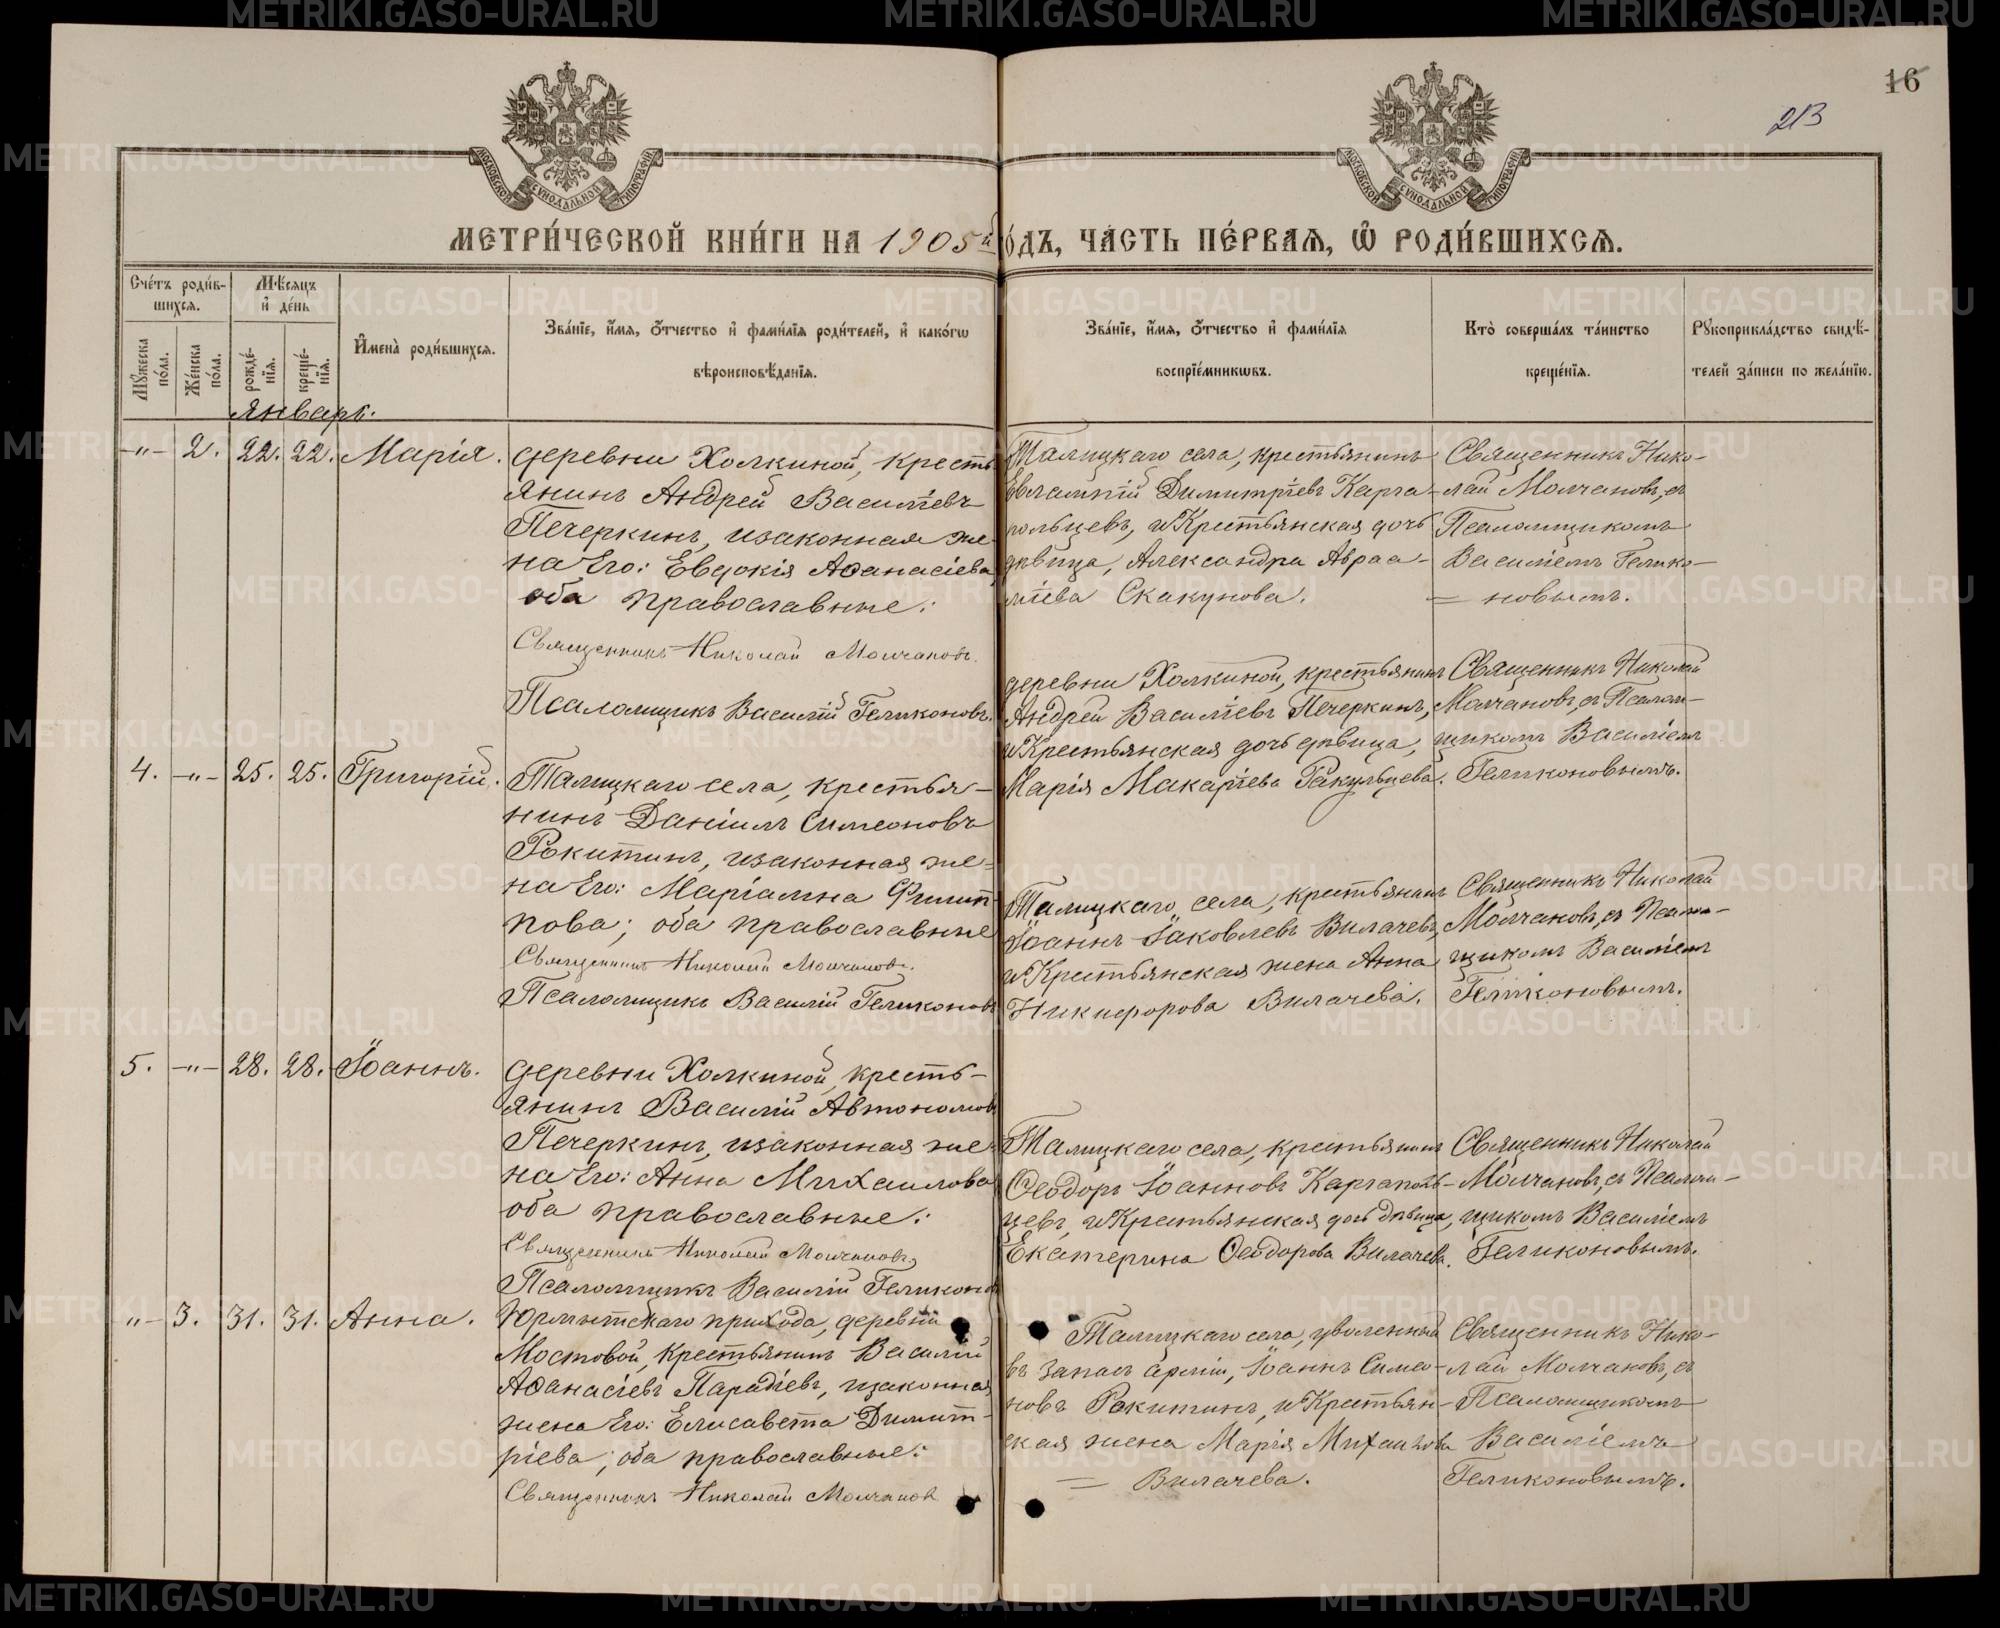 16
213
МЕТРИ́ЧЕСКОЙ КНИ́ГИ НА 1905й
О́ДЪ, ЧА́СТЬ ПЕ́РВАЯ, Ѡ҆ РОДИ́ВШИХСЯ.
Сче́тъ роди́в-
шихся.
Мѣ́сяцъ
и҆ де́нь
И҆мена̀ роди́вшихся.
Зва́нїе, и҆́мя, ѻ҆́тчество и҆ фамі́лїя роди́телей, и҆ како́гѡ
вѣроисповѣ́данїя.
Мꙋ́жеска по́ла.
Же́нска по́ла.
рожде́-нїя.
креще́-нїя.
Зва́нїе, и҆́мя, ѻ҆́тчество и҆ фамі́лїя
воспрїе́мникѡвъ.
Кто̀ соверша́лъ та́инство
креще́нїя.
Рꙋкоприкла́дство свидѣ́-
телей за́писи по жела́нїю.
Январь.
-"- 2. 22. 22. Марія.
деревни Холкиной, кресть-
янинъ Андрей Василіевъ
Печеркинъ, и законная же-
на Его: Евдокія Аѳанасіева
оба православные.
Священникъ Николай Молчановъ.
Псаломщикъ Василій Геликоновъ.
Талицкаго села, крестьянинъ
Евлампій Димитріевъ Карга-
польцевъ, и Крестьянская дочь
дѣвица, Александра Авраа-
міева Скакунова.
Священникъ Нико-
лай Молчановъ, съ
Псаломщикомъ
Василіемъ Гелико-
новымъ.
4. -"- 25. 25. Григорій.
Талицкаго села, крестья-
нинъ Даніилъ Симеоновъ
Рокитинъ, и законная же-
на Его: Маріамна Филип-
пова; оба православные
Священникъ Николай Молчановъ.
Псаломщикъ Василій Геликоновъ
деревни Холкиной, крестьянинъ
Андрей Василіевъ Печеркинъ,
и Крестьянская дочь дѣвица,
Марія Макаріева Ракульцева.
Священникъ Николай
Молчановъ, съ Псалом-
щикомъ Василіемъ
Геликоновымъ.
Талицкаго села, крестьянинъ
Іоаннъ Іаковлевъ Вилачевъ,
и Крестьянская жена Анна
Никифорова Вилачева.
Священникъ Николай
Молчановъ, съ Псалом-
щикомъ Василіемъ
Геликоновымъ.
5. -"- 28. 28. Іоаннъ.
деревни Холкиной, кресть-
янинъ Василій Автономовъ
Печеркинъ, и законная же-
на Его: Анна Михаилова
оба православные.
Священникъ Николай Молчановъ
Псаломщикъ Василій Геликоновъ
Талицкаго села, крестьянинъ
Ѳеодоръ Іоанновъ Каргаполь-
цевъ, и Крестьянская дочь дѣвица,
Екатерина Ѳеодорова Вилачева.
Священникъ Николай
Молчановъ, съ Псалом-
щикомъ Василіемъ
Геликоновымъ.
"- 3. 31. 31. Анна.
Юрмытскаго прихода, деревни
Мостовой, Крестьянинъ Василій
Аѳанасіевъ Парадіевъ, и законная
жена Его: Елисавета Димит-
ріева; оба православные.
Священникъ Николай Молчановъ
Талицкаго села, уволенный
въ запасъ арміи, Іоаннъ Симео-
новъ Рокитинъ, и Крестьян-
ская жена Марія Михаилова
Вилачева.
Священникъ Нико-
лай Молчановъ, съ
Псаломщикомъ
Василіемъ
Геликоновымъ.
METRIKI.GASO-URAL.RU